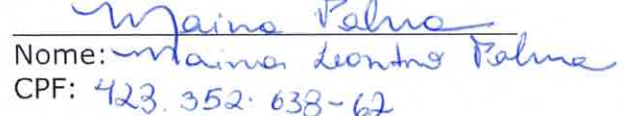 Maina Palma
Nome: Maina Leontino Palma
CPF: 423.352.638-62